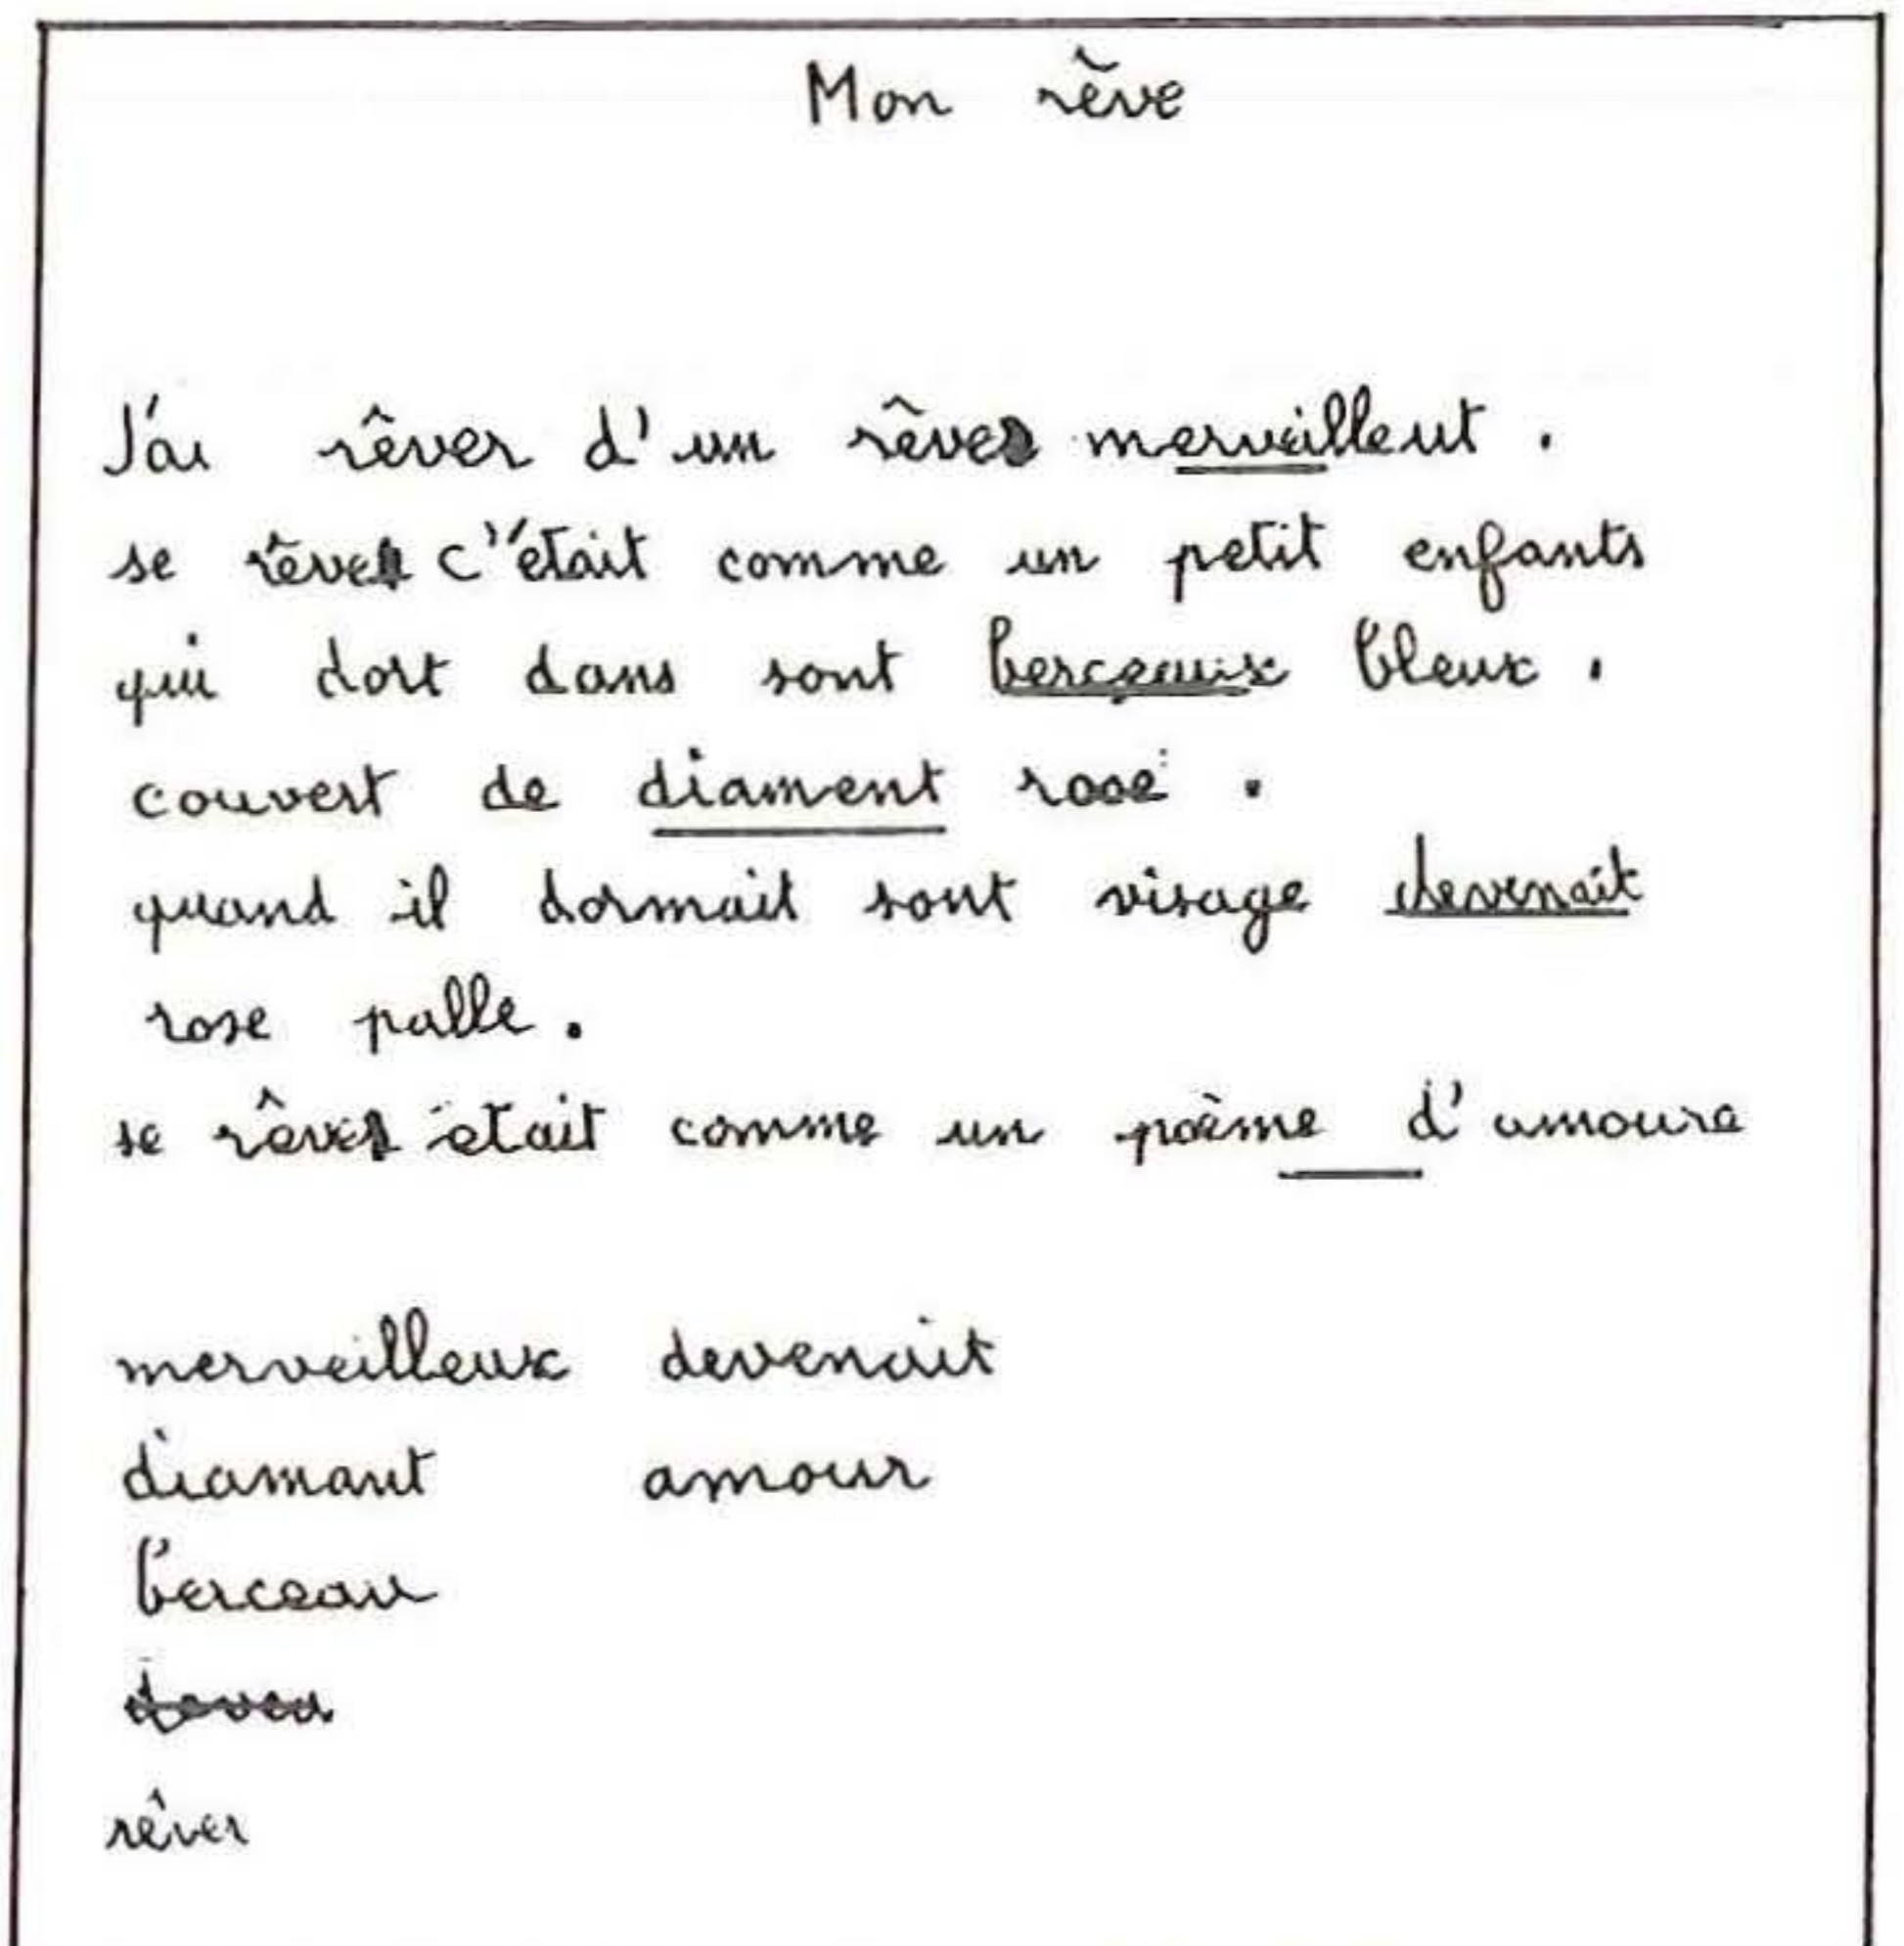 Mon rêve
J'ai rêver d'un rêve merveilleut .
se rêve c'était comme un petit enfants
qui dort dans sont berceaux bleux .
couvert de diament rose .
quand il dormait sont visage devenait
rose palle .
se rêve était comme un poème d'amoure
merveilleux devenait
diamant amour
berceau
rêver